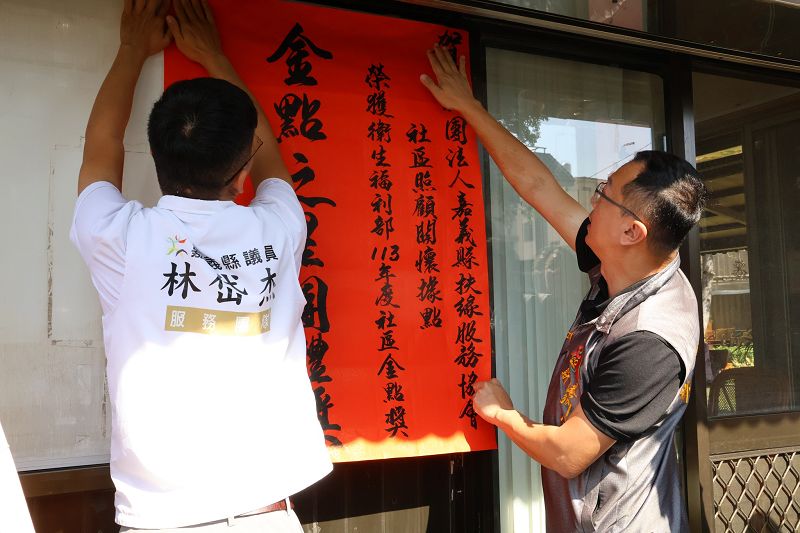 賀
團法人嘉義縣扶緣服務協會
社區照顧關懷據點
榮獲衛生福利部113年度社區金點獎
金點之星團體獎
嘉義縣議員
林岱杰
服務團隊